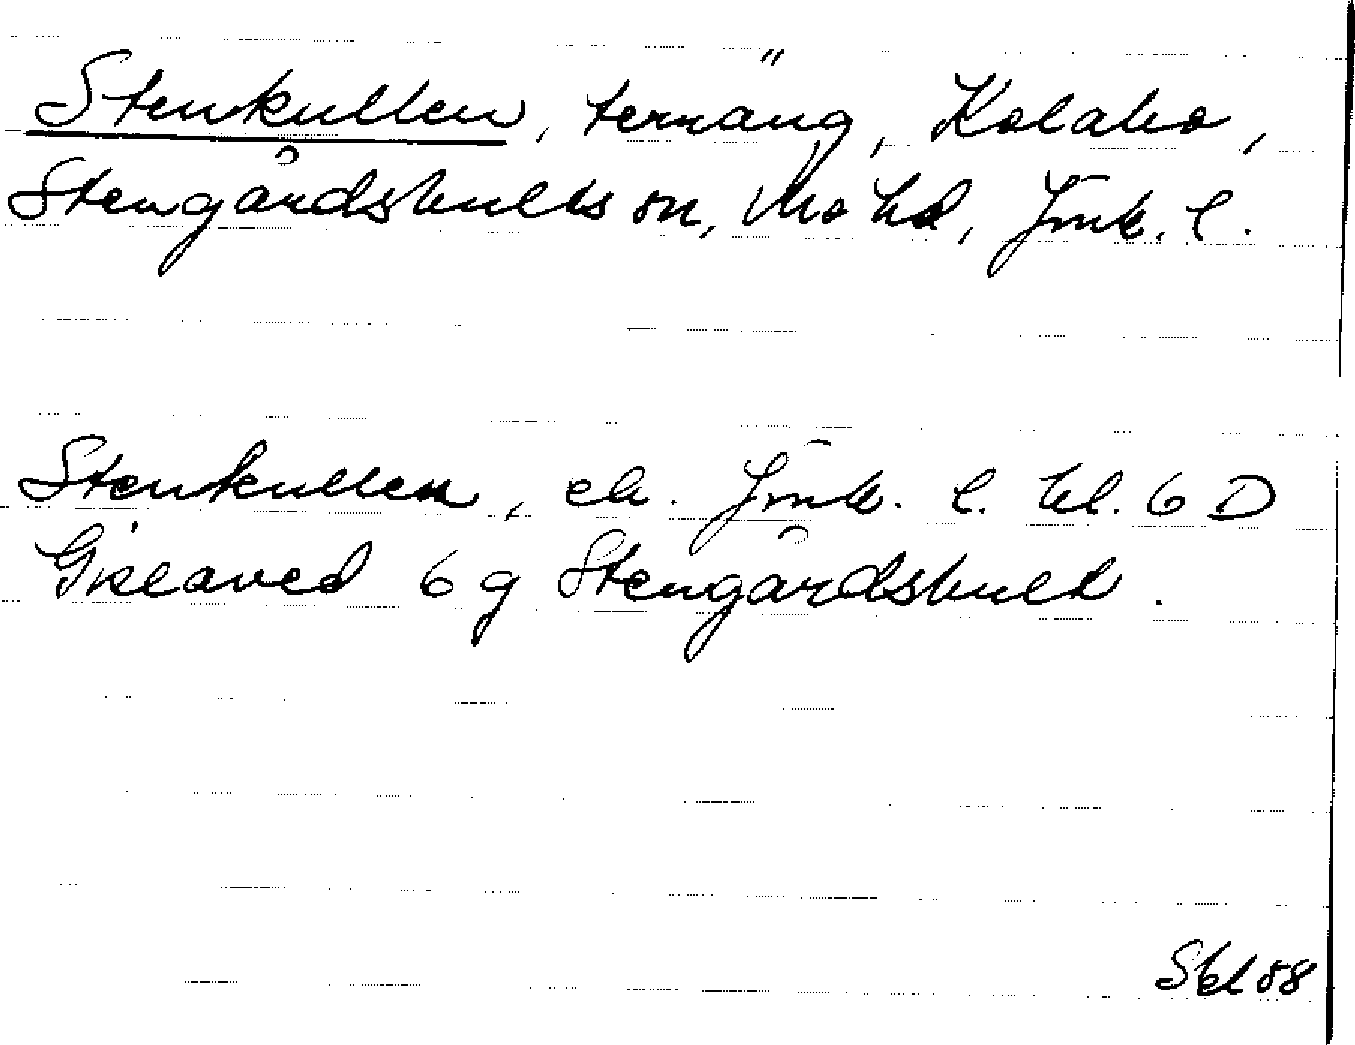 Stenkullen, terräng, Kolabo,
Stengårdshults sn, Mo hd, Jmk. l.
Stenkullen, ek. Jmk. l. bl. 6 D
Gislaved 6 g Stengårdshult.
Skl 88